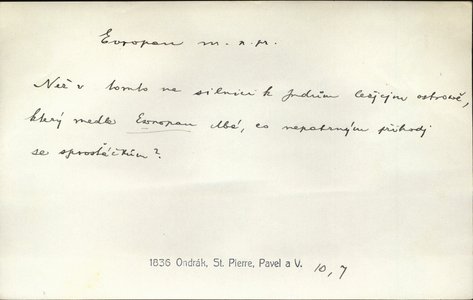 Evropan m. n. pr.
Než v tomto na silnici k Indům ležícím ostrově,
který medle Evropan dbá, co nepatrným přihodí
se sprostáčkům?
1836 Ondrák, St. Pierre, Pavel a V. 10, 7